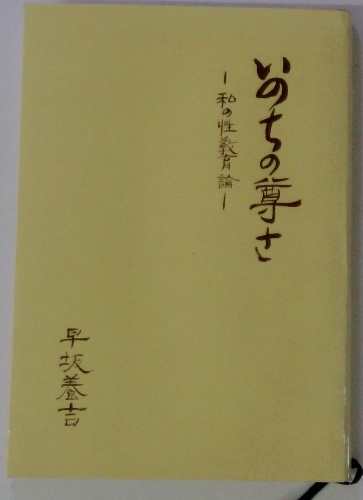 いのちの尊さ
－私の性教育論－
早坂養吉